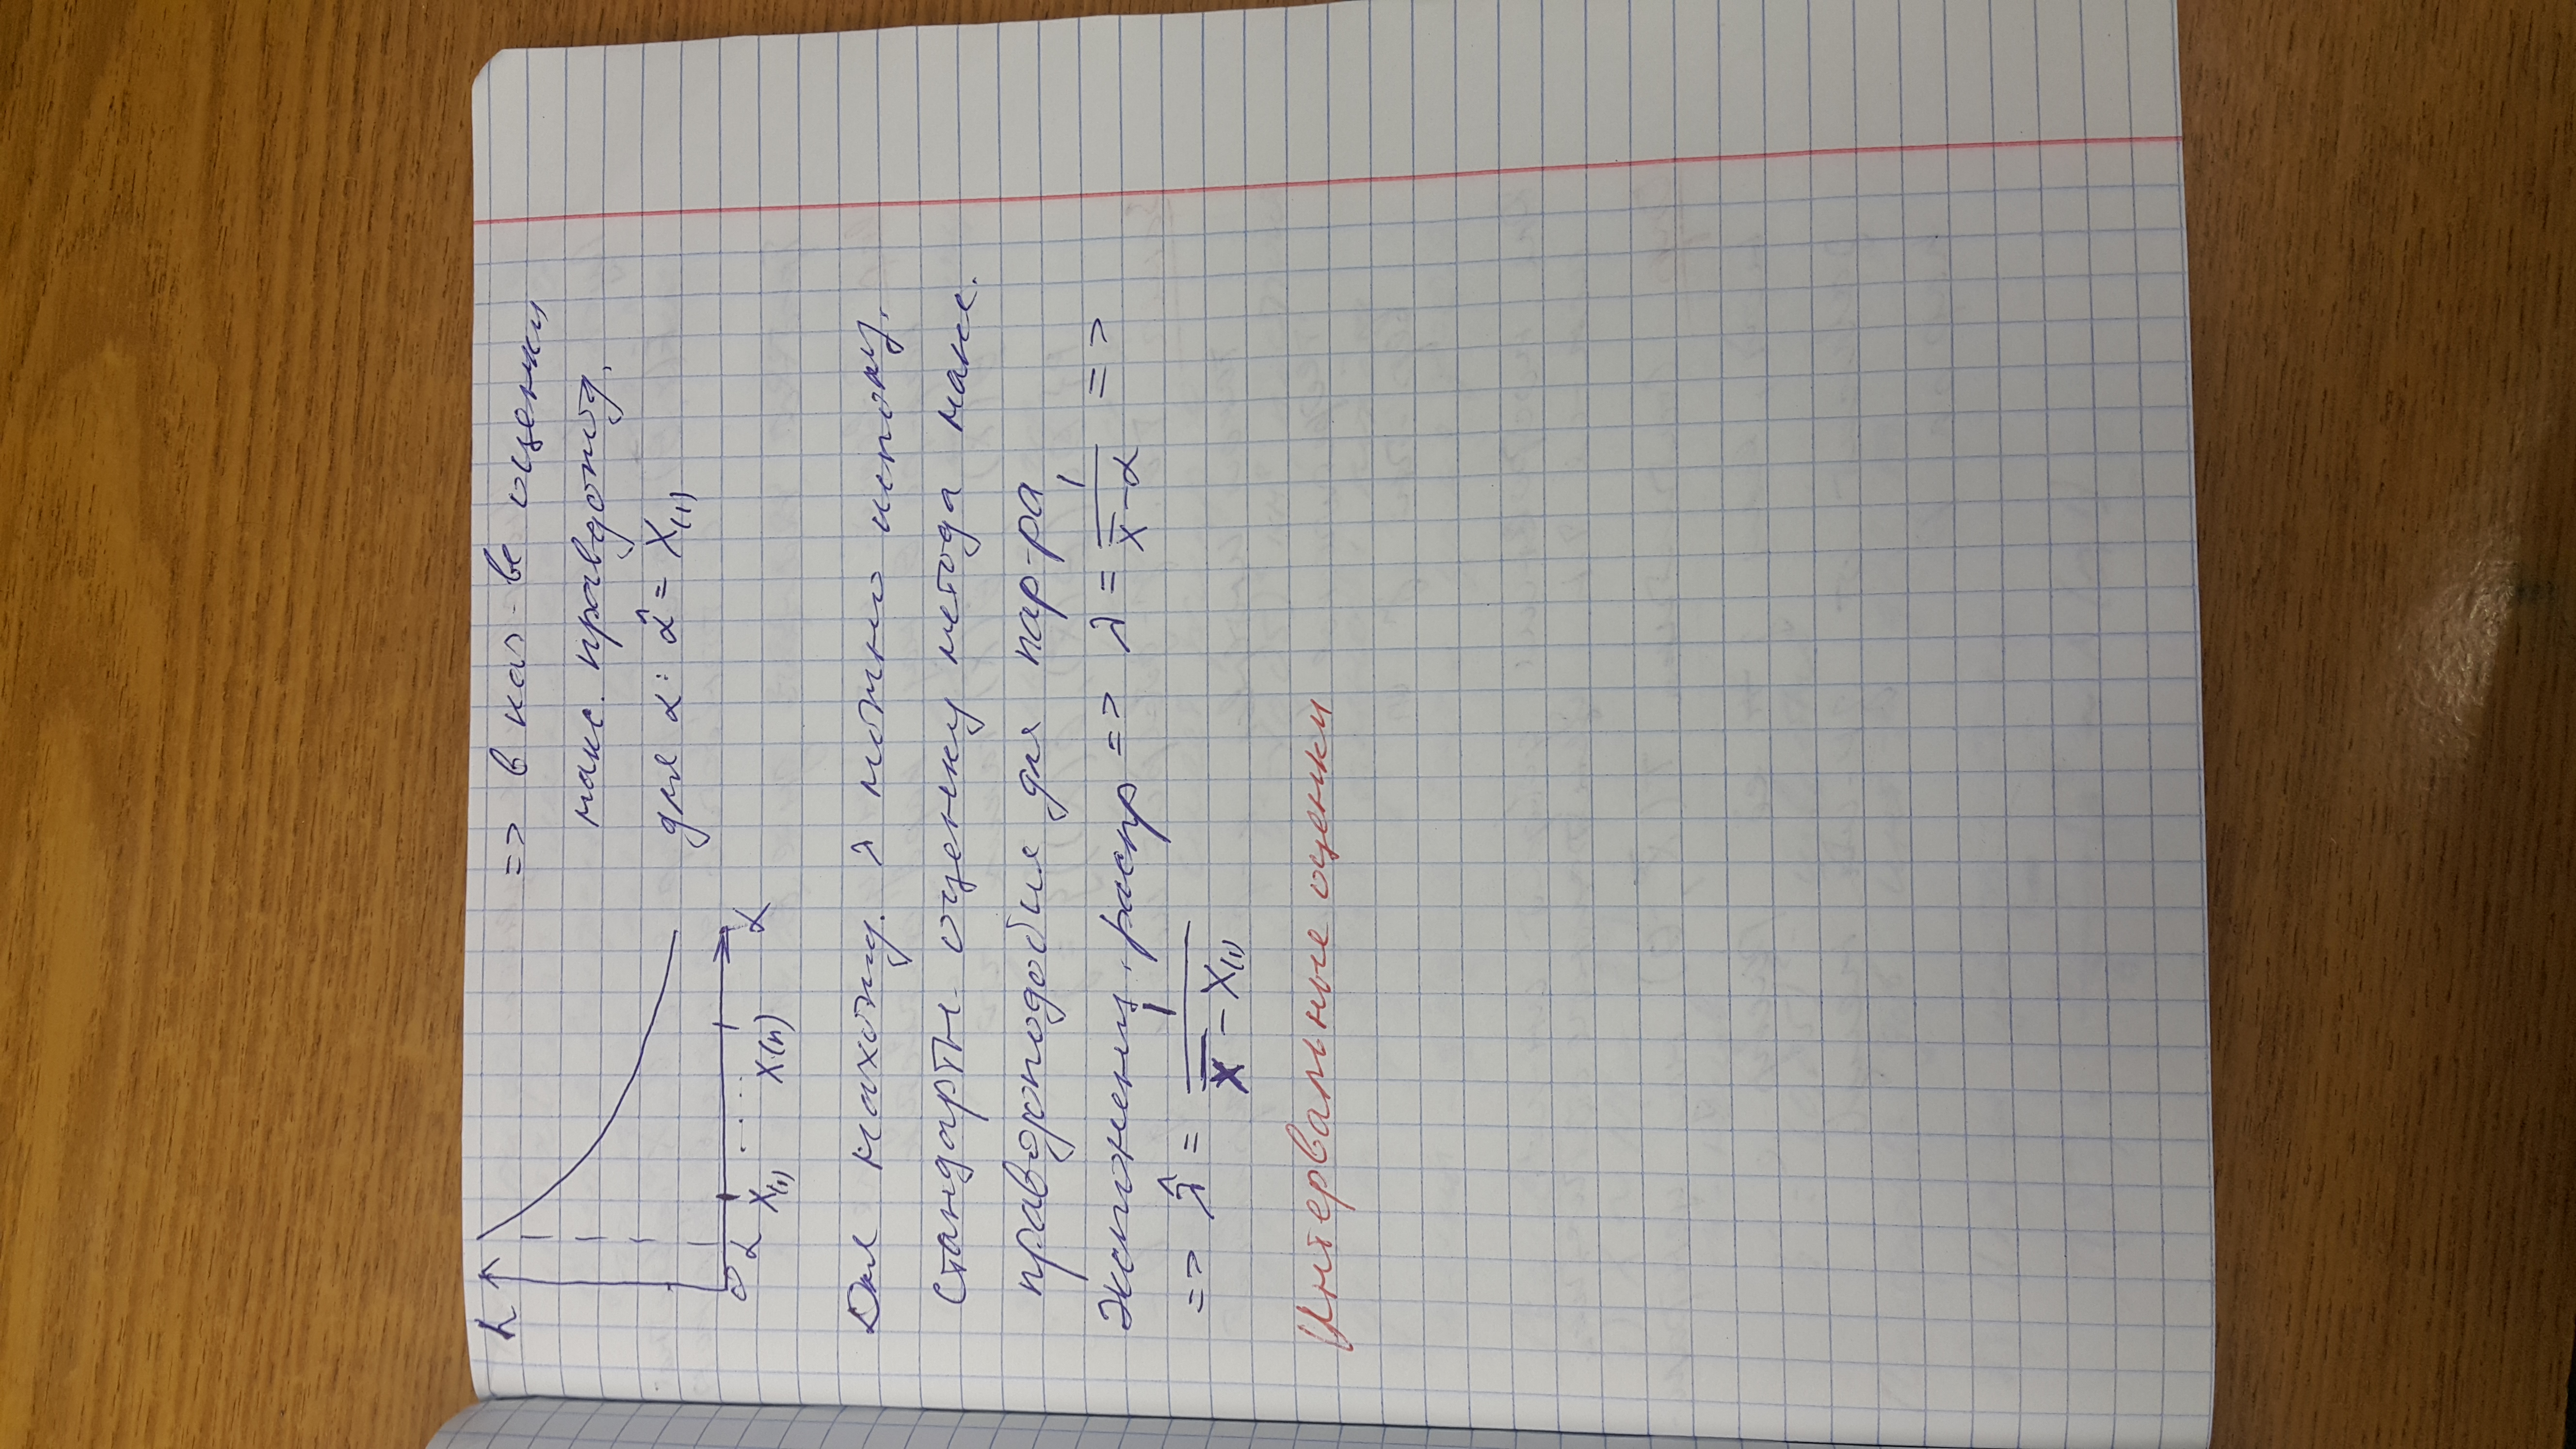 L
=> в кач-ве оценки
макс. правдопод.
для α: α̂ = X₍₁₎
0 α X₍₁₎ ..... X(n) α
Для нахожд. λ можно использ.
стандартн. оценку метода макс.
правдоподобия для пар-ра
экспоненц. распр => λ = 1/(x̄ - α) =>
=> λ̂ = 1/(x̄ - X₍₁₎)
Интервальные оценки